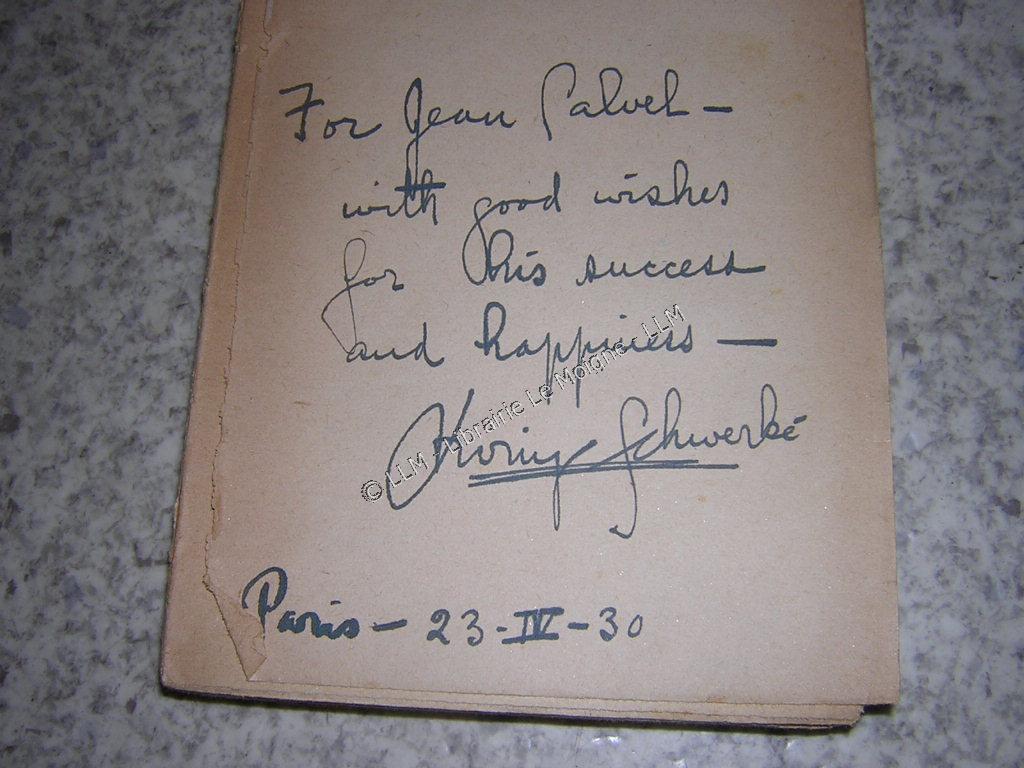 For Jean Calvel —
with good wishes
for his success
and happiness —
Irving Schwerké
Paris — 23-IV-30
© LLM - Librairie Le Moigne - LLM